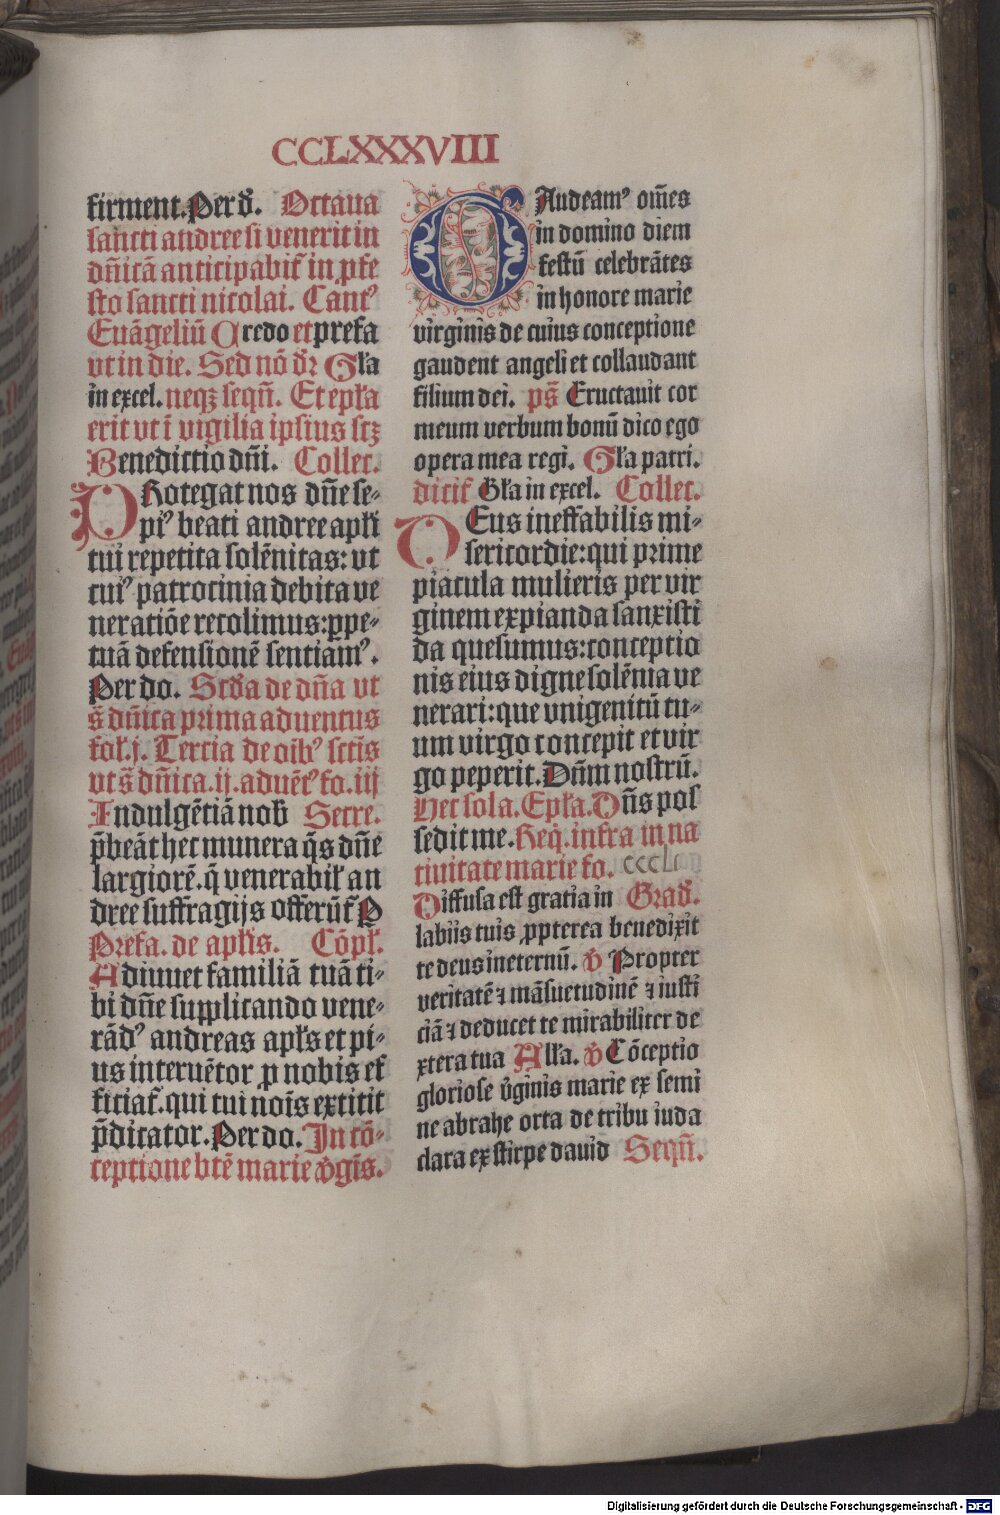 CCLXXXVIII
firment. Per d̄. Octaua
sancti andree si venerit in
dn̄icā anticipabit᷑ in ꝓfe
sto sancti nicolai. Cant᷒
Euāgeliū Credo et prefa
vt in die. Sed nō dr̄ Gl̄a
in excel. neqꝫ seqn̄. Et epl̄a
erit vt ī vigilia ipsius scꝫ
Benedictio dn̄i. Collec.
PRotegat nos dn̄e se⸗
pi᷒ beati andree apl̄i
tui repetita solēnitas: vt
cui᷒ patrocinia debita ve
neratiōe recolimus: ꝑpe⸗
tuā defensionē sentiam᷒.
Per do. Scd̄a de dn̄a vt
s̄ dn̄ica prima aduentus
fol. j. Tercia de oīb᷒ sctīs
vt s̄ dn̄ica. ij. aduēt᷒ fo. iij
Indulgētiā nob̄ Secre.
p̄beāt hec munera q̄s dn̄e
largiorē. q̄ venerabil̄ an
dree suffragijs offerūt᷑ P
Prefa. de apl̄is. Cōpl̄.
Adiuuet familiā tuā ti⸗
bi dn̄e supplicando vene⸗
rād᷒ andreas apl̄s et pi⸗
us interuētor ꝓ nobis ef
ficiat᷑. qui tui noīs extitit
p̄dicator. Per do. In cō⸗
ceptione btē marie v̄gis̄.
GAudeam᷒ oīn̄es
in domino diem
festū celebrātes
in honore marie
virginis de cuius conceptione
gaudent angeli et collaudant
filium dei. ps̄ Eructauit cor
meum verbum bonū dico ego
opera mea regi. Gl̄a patri.
dicit᷑ Gl̄a in excel. Collec.
DEus ineffabilis mi⸗
sericordie: qui prime
piacula mulieris per vir
ginem expianda sanxisti
da quesumus: conceptio
nis eius digne solēnia ve
nerari: que vnigenitū tu⸗
um virgo concepit et vir
go peperit. Dn̄m nostrū.
Hec sola. Epl̄a. Dn̄s pos
sedit me. Req̄. infra in na
tiuitate marie fo. cccl
Diffusa est gratia in Grad̄.
labiis tuis ꝓpterea benedixit
te deus in eternū. v̄ Propter
veritatē ⁊ māsuetudinē ⁊ iusti
ciā ⁊ deducet te mirabiliter de
xtera tua All̄a. v̄ Cōceptio
gloriose v̄ginis marie ex semi
ne abrahe orta de tribu iuda
clara ex stirpe dauid Seqn̄.
Digitalisierung gefördert durch die Deutsche Forschungsgemeinschaft - DFG